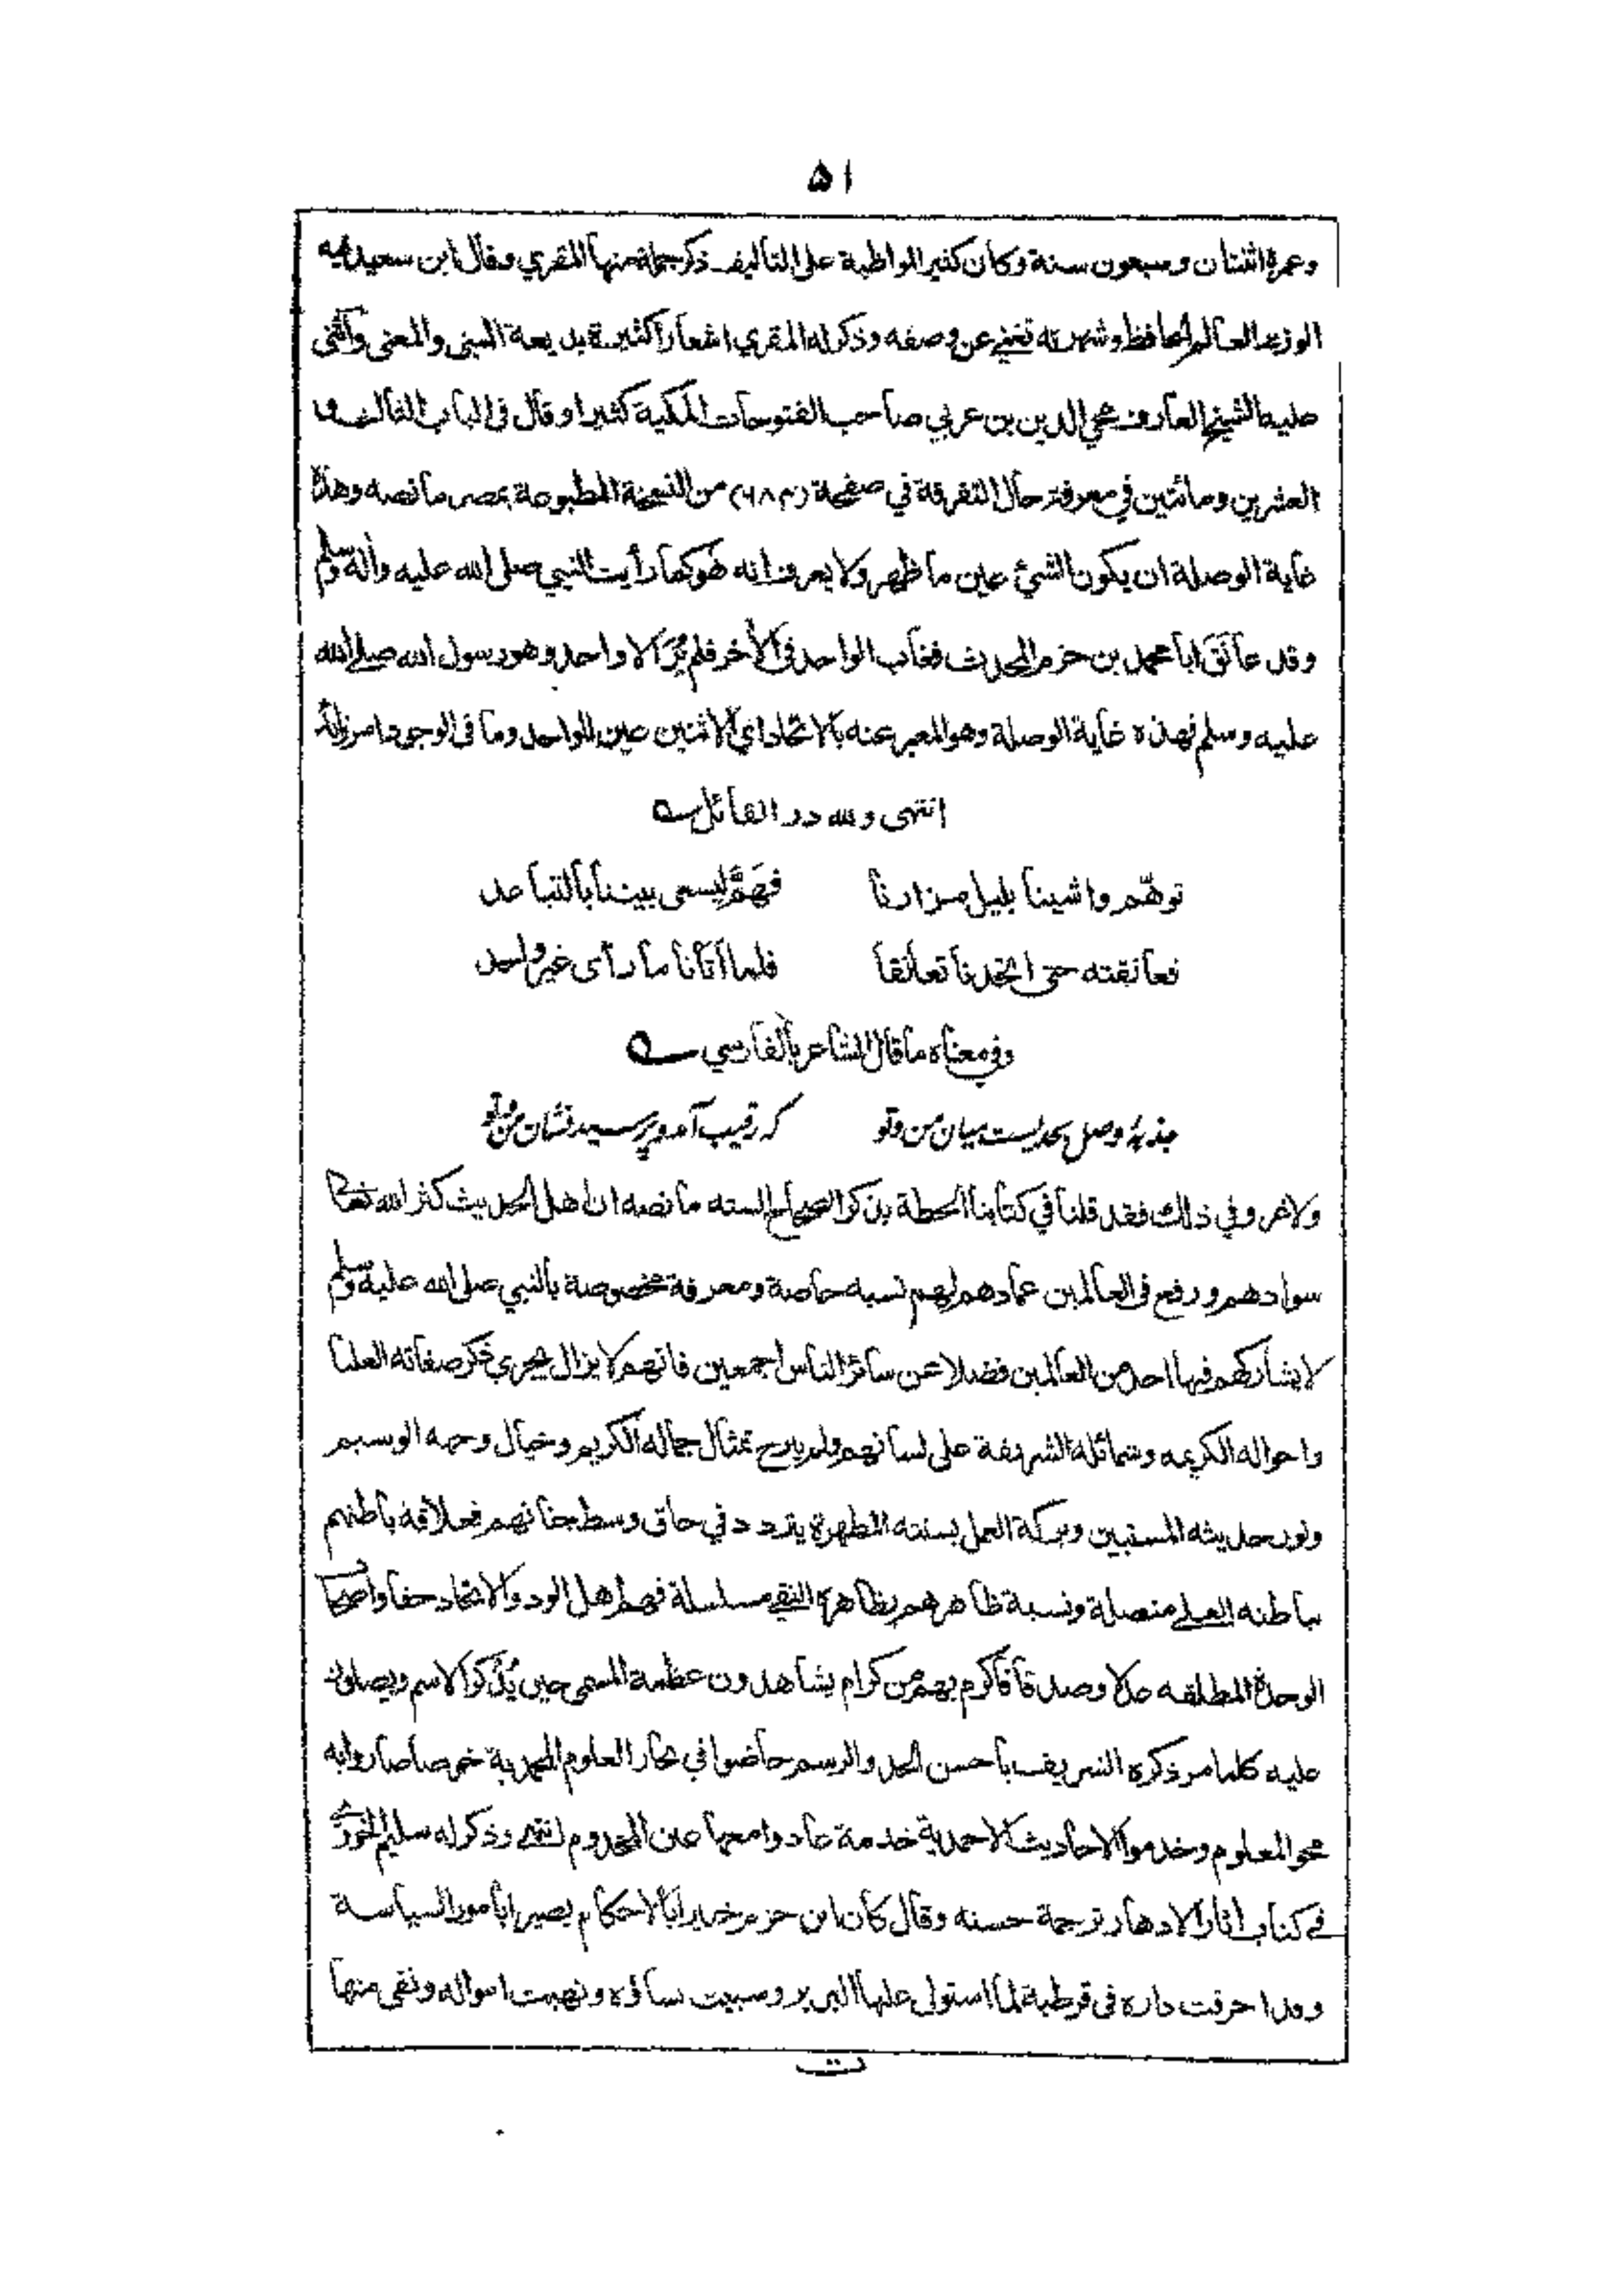 ۵۱
وعمره اثنتان وسبعون سنة وكان كثير المواظبة على التاليف ذكر جملة منها المقري وقال ابن سعيد فيه
الوزير العالم الحافظ وشهرته تغني عن وصفه وذكر له المقري اشعارا كثيرة بديعة المبنى والمعنى وأثنى
عليه الشيخ العارف محي الدين بن عربي صاحب الفتوحات المكية كثيرا وقال في الباب الثالث و
العشرين ومائتين في معرفة حال التفرقة في صفحة من النسخة المطبوعة بمصر ما نصه وهذا
غاية الوصلة ان يكون الشيئ عين ما ظهر ولا يعرف انه هو كما رأيت النبي صلى الله عليه وآله وسلم
وقد عانق ابا محمد بن حزم المحدث فغاب الواحد في الآخر فلم نر الا واحد وهو رسول الله صلى الله
عليه وسلم فهذه غاية الوصلة وهو المعبر عنه بالاتحاد اي الاثنين عين الواحد وما في الوجود امر زائد
انتهى ولله در القائل
توهّم واشينا بليل مزارنا فهَمَّ ليسعى بيننا بالتباعد
فعانقته حتى اتحدنا تعانقا فلما أتانا ما رأى غير واحد
وفي معناه ما قال الشاعر بالفارسي
جذبهٔ وصل بحدیست میان من وتو که رقیب آمد و پرسید نشان من وتو
ولاغرو في ذلك فقد قلنا في كتابنا الحطة بذكر الصحاح الستة ما نصه ان اهل الحديث كثر الله تعالى
سوادهم ورفع في العالمين عمادهم لهم نسبة خاصة ومعرفة مخصوصة بالنبي صلى الله عليه وسلم
لا يشاركهم فيها احد من العالمين فضلا عن سائر الناس اجمعين فانهم لا يزال يجري ذكر صفاته العليا
واحواله الكريمة وشمائله الشريفة على لسانهم ولم يبرح تمثال جماله الكريم وخيال وجهه الوسيم
ونور حديثه المستبين وبركة العمل بسنته المطهرة يتردد في حاق وسط جنانهم فعلاقة باطنهم
بباطنه العلي متصلة ونسبة ظاهرهم بظاهره النقي مسلسلة فهم اهل الود والاتحاد حقا واصحاب
الوحدة المطلقة عدلا وصدقا فأكرم بهم من كرام يشاهدون عظمة المسمى حين يُذكر الاسم ويصلون
عليه كلما مر ذكره الشريف باحسن الحد والرسم خاضوا في بحار العلوم المحمدية خوصا صاروا به
محو المعلوم وخدموا الاحاديث الاحمدية خدمة عادوا معها عين المخدوم انتهى وذكر له سليم الخوري
في كتاب اثار الادهار ترجمة حسنة وقال كان ابن حزم خبيرا بالاحكام بصيرا بامور السياسة
وقد احرقت داره في قرطبة لما استولى عليها البربر وسبيت نساؤه ونهبت امواله ونفي منها